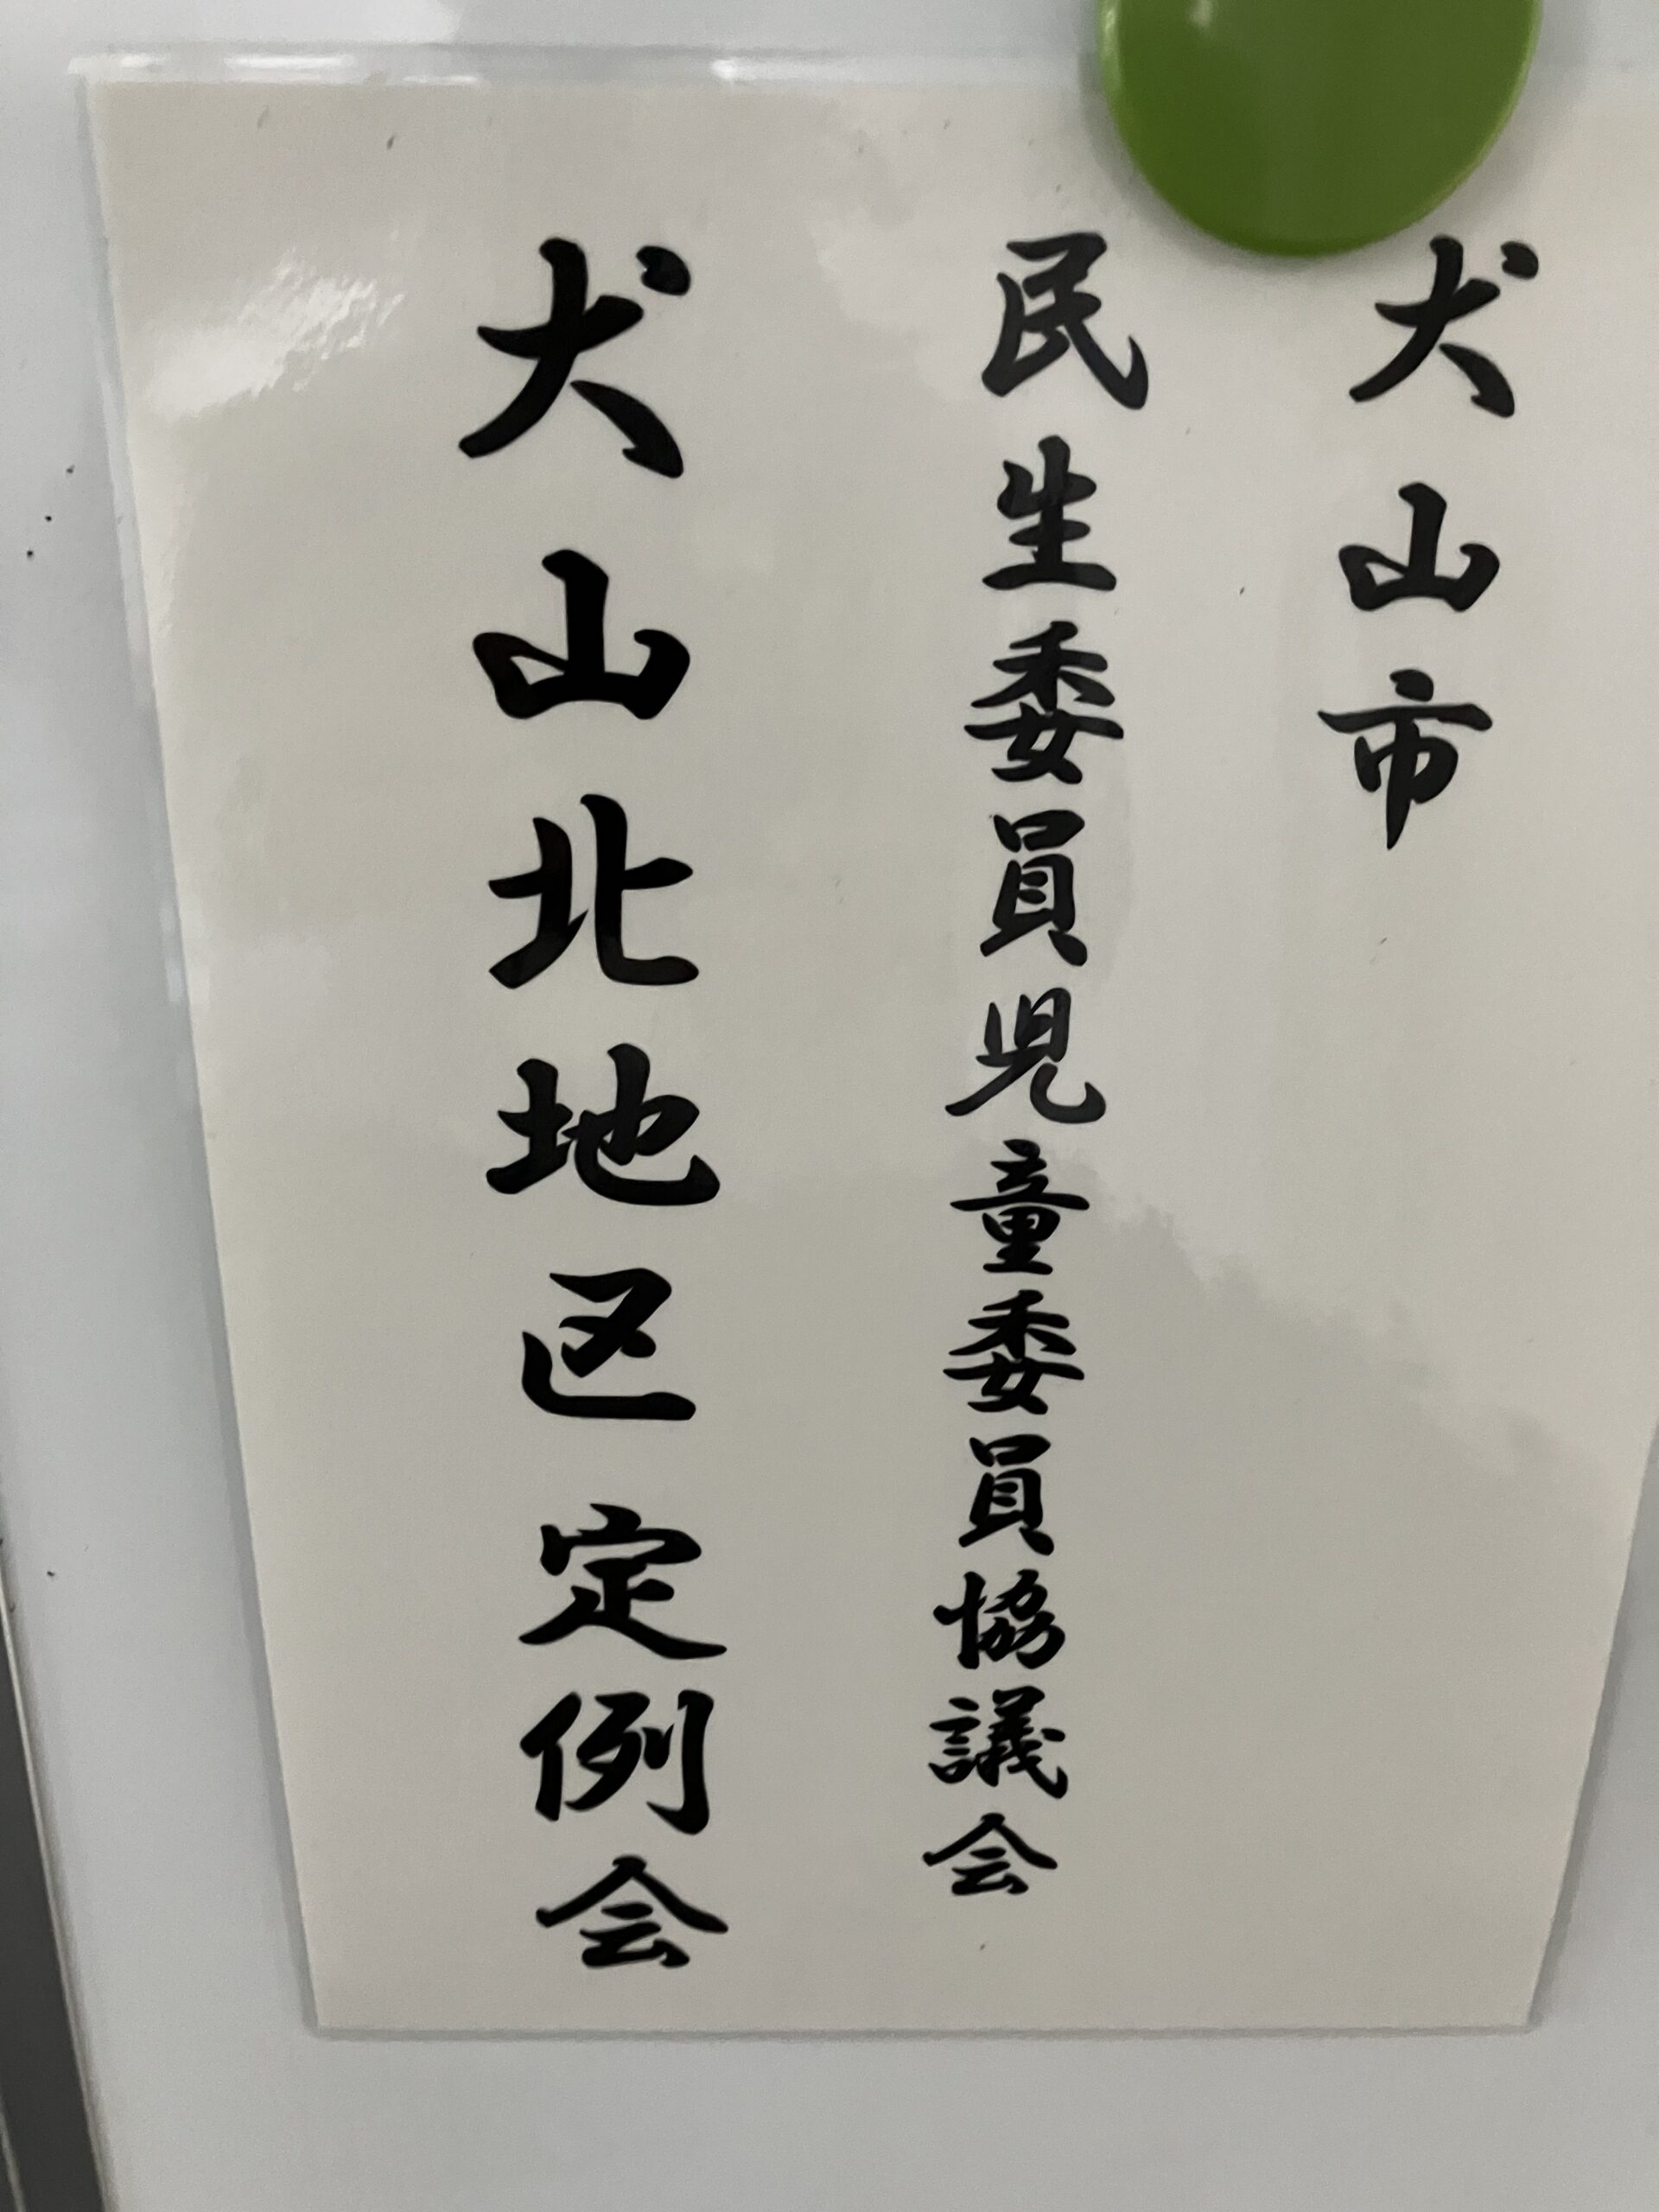 犬山市
民生委員児童委員協議会
犬山北地区定例会